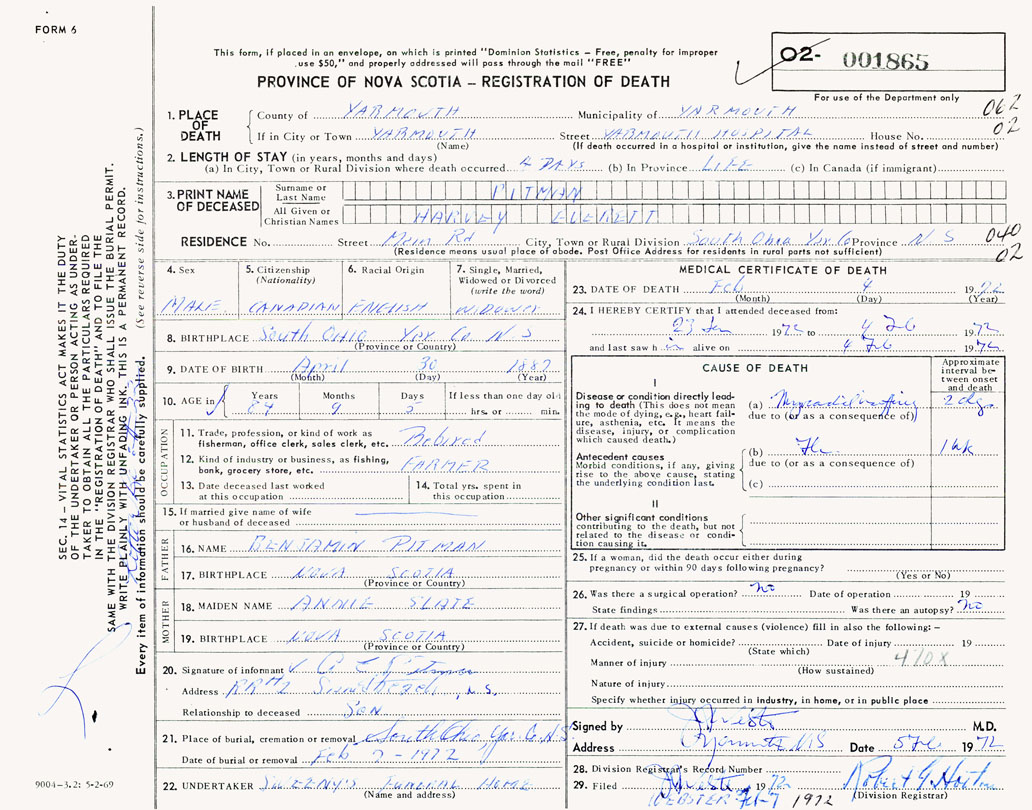 FORM 6
This form, if placed in an envelope, on which is printed "Dominion Statistics – Free, penalty for improper
use $50," and properly addressed will pass through the mail "FREE"
PROVINCE OF NOVA SCOTIA – REGISTRATION OF DEATH
02- 001865
For use of the Department only
1. PLACE OF DEATH
County of YARMOUTH Municipality of YARMOUTH 062
If in City or Town YARMOUTH Street YARMOUTH HOSPITAL House No. 02
(Name) (If death occurred in a hospital or institution, give the name instead of street and number)
2. LENGTH OF STAY (in years, months and days)
(a) In City, Town or Rural Division where death occurred 4 DAYS (b) In Province LIFE (c) In Canada (if immigrant)
3. PRINT NAME OF DECEASED
Surname or Last Name PITMAN
All Given or Christian Names HARVEY EVERETT
RESIDENCE No. Street Main Rd City, Town or Rural Division South Ohio Yar Co Province N S 040
(Residence means usual place of abode. Post Office Address for residents in rural parts not sufficient) 02
4. Sex 5. Citizenship (Nationality) 6. Racial Origin 7. Single, Married, Widowed or Divorced (write the word)
MALE CANADIAN ENGLISH WIDOWER
8. BIRTHPLACE South Ohio Yar Co N S
(Province or Country)
9. DATE OF BIRTH April 30 1887
(Month) (Day) (Year)
10. AGE in Years Months Days If less than one day old
84 9 5 hrs. or min.
OCCUPATION
11. Trade, profession, or kind of work as fisherman, office clerk, sales clerk, etc. Retired
12. Kind of industry or business, as fishing, bank, grocery store, etc. FARMER
13. Date deceased last worked at this occupation
14. Total yrs. spent in this occupation
15. If married give name of wife or husband of deceased
FATHER
16. NAME BENJAMIN PITMAN
17. BIRTHPLACE NOVA SCOTIA
(Province or Country)
MOTHER
18. MAIDEN NAME ANNIE SLATE
19. BIRTHPLACE NOVA SCOTIA
(Province or Country)
20. Signature of informant Pitman
Address RR#2 , N.S.
Relationship to deceased SON
21. Place of burial, cremation or removal South Ohio, Yar. Co. N.S.
Date of burial or removal Feb 7 - 1972
22. UNDERTAKER SWEENY'S FUNERAL HOME
(Name and address)
MEDICAL CERTIFICATE OF DEATH
23. DATE OF DEATH Feb 4 1972
(Month) (Day) (Year)
24. I HEREBY CERTIFY that I attended deceased from:
23 Jan 1972 to 4 Feb 1972
and last saw h im alive on 4 Feb 1972
CAUSE OF DEATH
Approximate interval between onset and death
I
Disease or condition directly leading to death (This does not mean the mode of dying, e.g., heart failure, asthenia, etc. It means the disease, injury, or complication which caused death.)
(a) 2 dys
due to (or as a consequence of)
Antecedent causes
Morbid conditions, if any, giving rise to the above cause, stating the underlying condition last.
(b) Flu 1 wk
due to (or as a consequence of)
(c)
II
Other significant conditions contributing to the death, but not related to the disease or condition causing it.
25. If a woman, did the death occur either during
pregnancy or within 90 days following pregnancy?
(Yes or No)
26. Was there a surgical operation? no Date of operation 19
State findings Was there an autopsy? no
27. If death was due to external causes (violence) fill in also the following: –
Accident, suicide or homicide? Date of injury 19
(State which)
Manner of injury 470X
(How sustained)
Nature of injury
Specify whether injury occurred in industry, in home, or in public place
Signed by M.D.
Address Yarmouth NS Date 5 Feb 1972
28. Division Registrar's Record Number
29. Filed 1972 Robert G. 
WEBSTER Feb 7 1972 (Division Registrar)
SEC. 14 – VITAL STATISTICS ACT MAKES IT THE DUTY
OF THE UNDERTAKER OR PERSON ACTING AS UNDER-
TAKER TO OBTAIN ALL THE PARTICULARS REQUIRED
IN THE "REGISTRATION OF DEATH" AND TO FILE THE
SAME WITH THE DIVISION REGISTRAR WHO SHALL ISSUE THE BURIAL PERMIT.
WRITE PLAINLY WITH UNFADING INK. THIS IS A PERMANENT RECORD.
Every item of information should be carefully supplied. (See reverse side for instructions.)
9004-3.2: 5-2-69